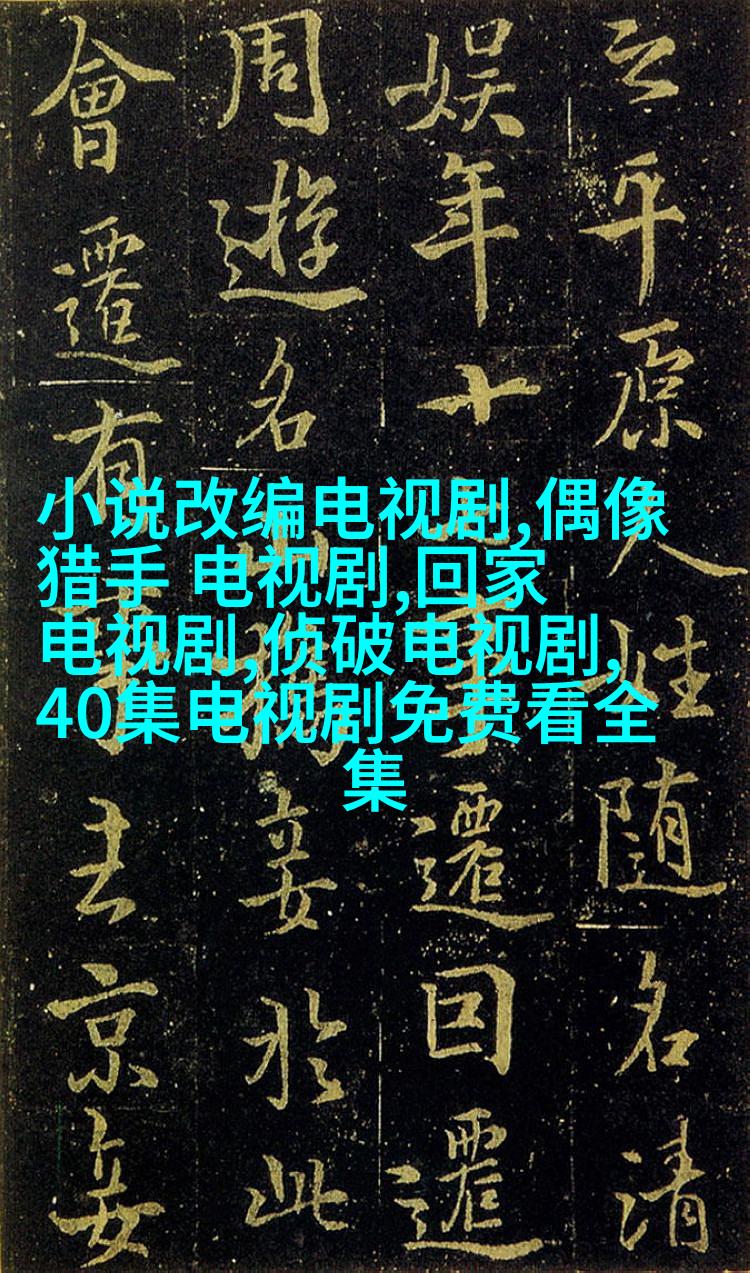 小说改编电视剧,偶像
猎手 电视剧,回家
电视剧,侦破电视剧,
40集电视剧免费看全
集
平原人姓随名清
娱年十遷回遷
周遊名山於此
會遷有京